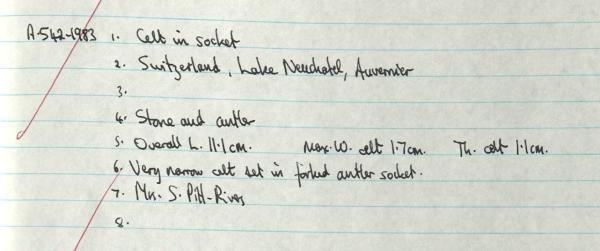 A.542.1983 1. Celt in socket
2. Switzerland, Lake Neuchatel, Auvernier
3.
4. Stone and antler
5. Overall L. 11.1cm. Max. W. celt 1.7cm. Th. celt 1.1cm.
6. Very narrow celt set in forked antler socket.
7. Mr. S. Pitt-Rivers
8.